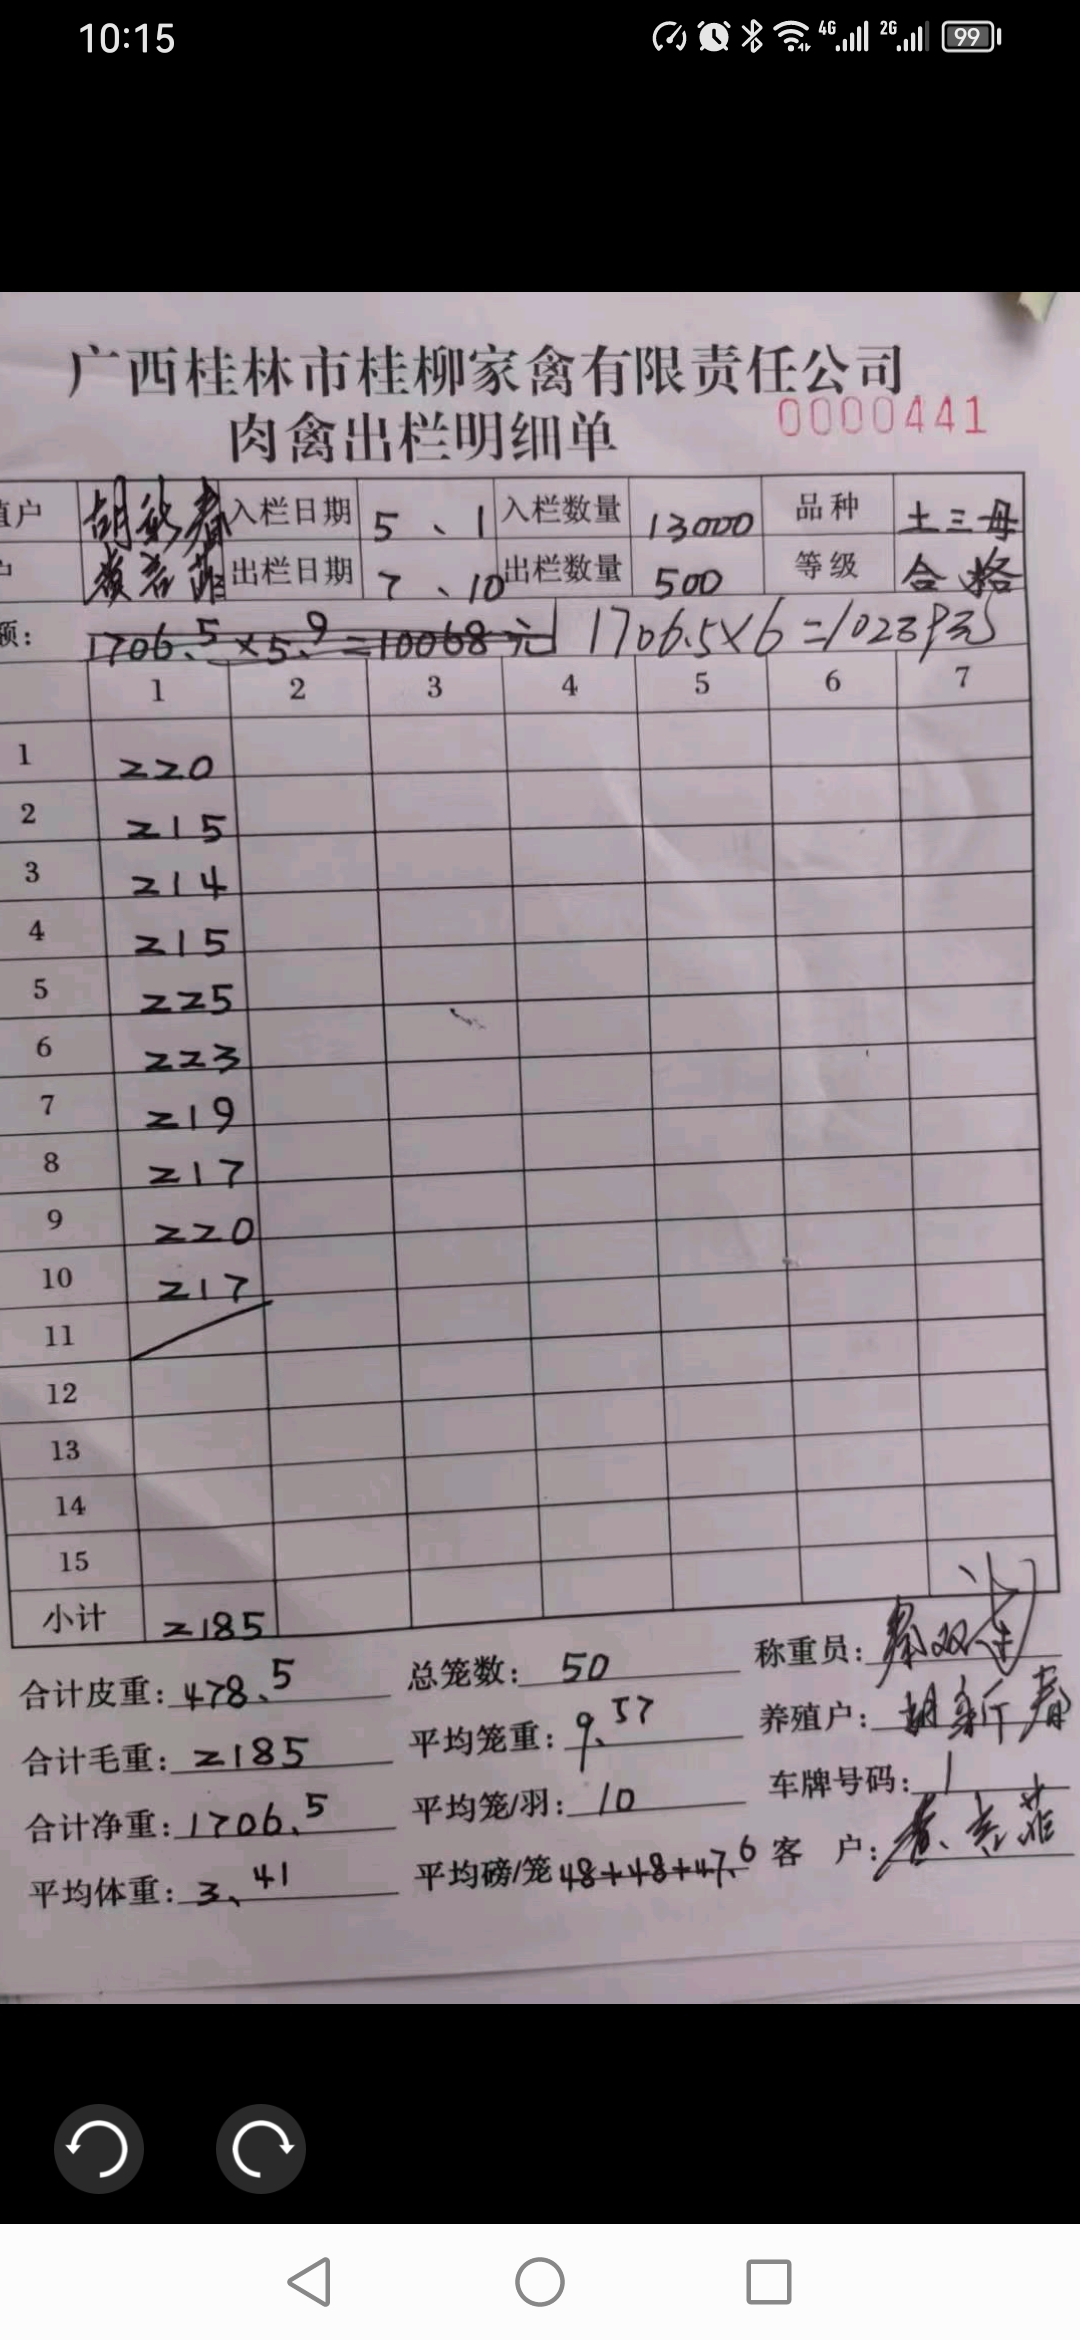 10:15
4G 2G 99
广西桂林市桂柳家禽有限责任公司
肉禽出栏明细单 0000441
直户 胡新春 入栏日期 5、1 入栏数量 13000 品种 土三母
户 出栏日期 7、10 出栏数量 500 等级 合格
额: 1706.5×5.9=10068元 1706.5×6=10239元
1 2 3 4 5 6 7
1 220
2 215
3 214
4 215
5 225
6 223
7 219
8 217
9 220
10 217
11
12
13
14
15
小计 2185
合计皮重: 478.5 总笼数: 50 称重员:
合计毛重: 2185 平均笼重: 9.57 养殖户: 胡新春
合计净重: 1706.5 平均笼/羽: 10 车牌号码: 1
平均体重: 3.41 平均磅/笼 48+48+47.6 客 户: